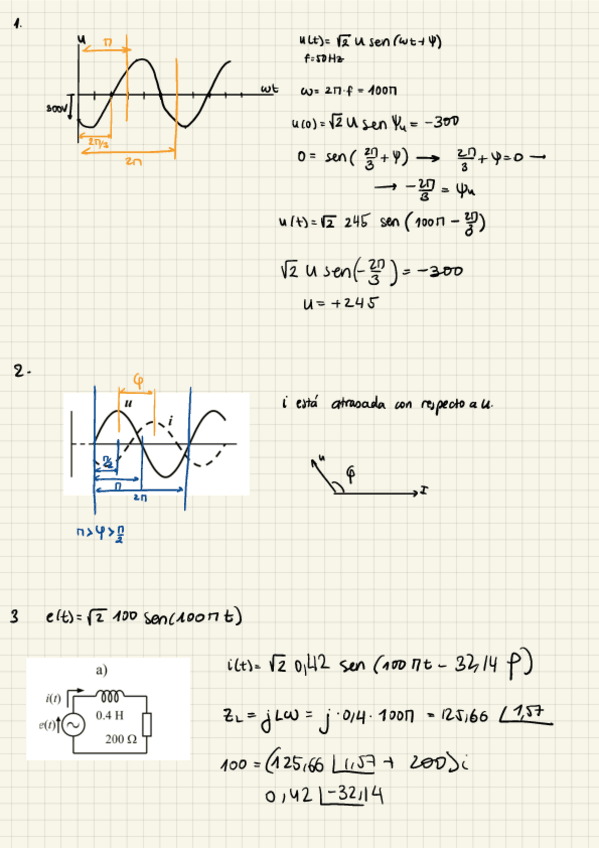 1.
u
π
ωt
300V
2π/3
2π
u(t)= √2 U sen(ωt+φ)
f=50Hz
ω= 2π·f = 100π
u(0)=√2 U sen Ψu = -300
0= sen( 2π/3 + φ) → 2π/3 + φ=0 →
→ -2π/3 = φu
u(t)=√2 245 sen(100π - 2π/3)
√2 U sen(-2π/3) = -300
U = +245
2.
φ
u
i
π/2
π
2π
π>φ>π/2
i está atrasada con respecto a u.
u
φ
I
3 e(t)= √2 100 sen(100πt)
a)
i(t)
0.4 H
e(t)
200 Ω
i(t)= √2 0,42 sen (100πt - 32,14
ZL = jLω = j·0,4·100π = 125,66 ∠1,57
100 = (125,66 ∠1,57 + 200)i
0,42 ∠-32,14